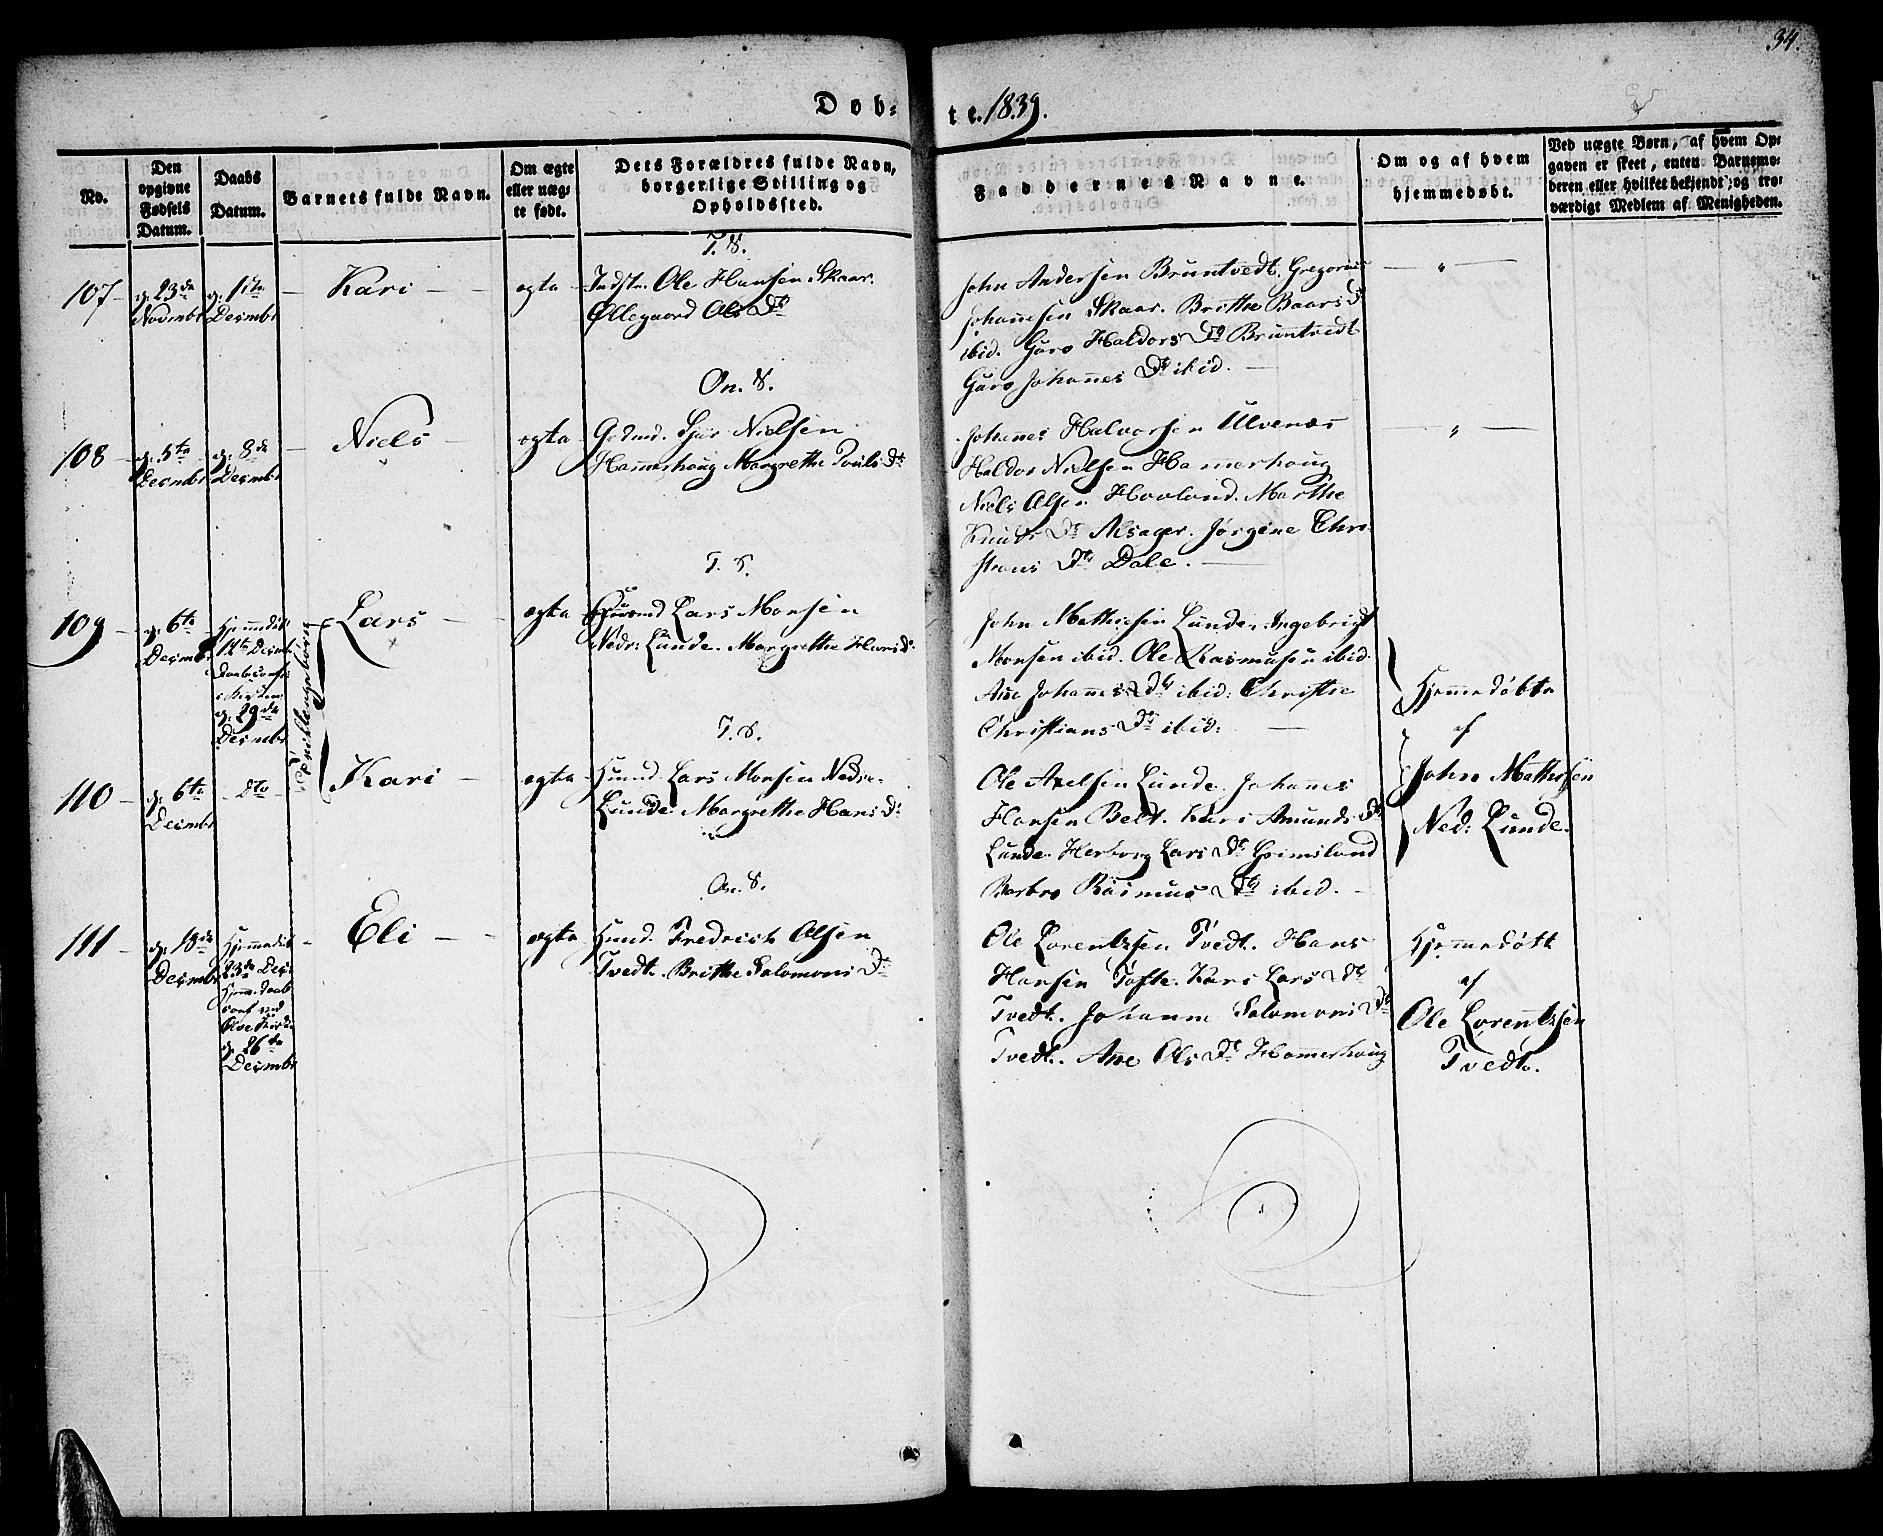 34.
Døb-
te. 1839.
No.
Den
opgivne
Fødsels
Datum.
Daabs
Datum.
Barnets fulde Navn.
Om ægte
eller uæg-
te født.
Dets Forældres fulde Navn,
borgerlige Stilling og
Opholdssted.
Faddernes Navne.
Om og af hvem
hjemmedøbt.
Ved uægte Børn, af hvem Op-
gaven er skeet, enten Barnemo-
deren eller hvilket bekjendt og tro-
værdigt Medlem af Menigheden.
T. S.
107
d: 23de
Novmbr
d: 1ste
Desmbr
Kari
ægte
Indstr. Ole Hansen Skaar.
Øllegaard Ols Dtr
John Andersen Bruntvedt, Gregorius
Johannesen Skaar. Brithe Baars Dtr
ibid. Guro Haldors Dtr Bruntvedt
Guro Johannes Dtr ibid.
On. S.
108
d: 5te
Desmbr
d: 8de
Desmbr
Niels
ægte
Nielsen
Hammerhoug Margrethe Dtr
Johannes Halvorsen Ulvenæs
Haldor Nielsen Hammerhoug
Niels Olsen Hovland. Marthe
Knuds Dtr Alsager. Jørgine Chri-
stians Dtr Dale.
T. S.
109
d: 6te
Desmbr
Hjemmedøbt
d: 29de
Desmbr
Tvillingebørn
Lars
ægte
Huusmd Lars Monsen
Nedr: Lunde. Margrethe Hans Dr
John Mathiesen Lunde. Ingebrigt
Monsen ibid. Ole Rasmusen ibid.
Ane Johannes Dtr ibid: Christie
Christians Dtr ibid:
Hjemmedøbte
af
John Mathiesen
Ned: Lunde.
T. S.
110
d: 6te
Desmbr
Dto
Kari
ægte
Huusmd. Lars Monsen Nedre
Lunde Margrethe Hans Dr
Ole Axelsen Lunde. Johannes
Hansen Belt. Kari Amunds Dtr
Lunde. Herborg Lars Dtr Grimsland
Barbro Rasmus Dtr ibid.
On. S.
111
d: 18de
Desmbr
Hjemmedøbt
23de Des:
d: 26de
Desmbr
Eli
ægte
Huusmd. Fredrich Olsen
Tvedt. Brithe Salomons Dr
Ole Lorentzsen Tvedt. Hans
Hansen Tofte. Kari Lars Dtr
Tvedt. Johanne Salomons Dtr
Tvedt. Ane Ols Dtr Hammerhoug
Hjemmedøbt
af
Ole Lorentzsen
Tvedt.